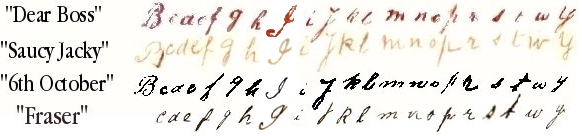 "Dear Boss" B c d e f g h I i J k l m n o p r s t w y
"Saucy Jacky" B c d e f g h I i J k l m n o p r s t w y
"6th October" B c d e f g h I i J k l m n o p r s t w y
"Fraser" c d e f g h I i J k l m n o p r s t w y